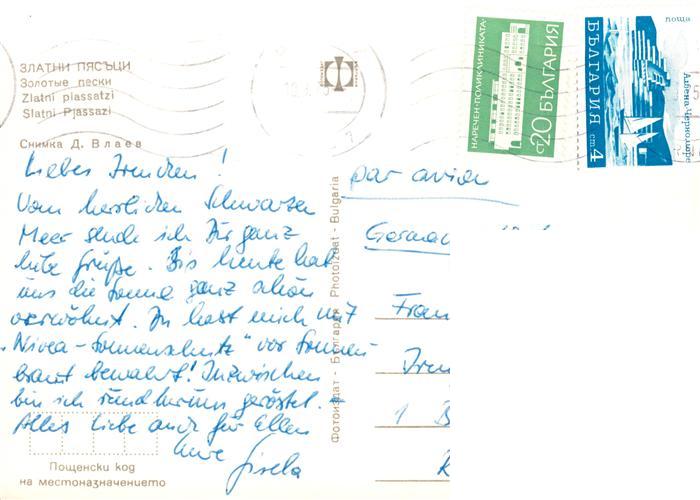 ЗЛАТНИ ПЯСЪЦИ
Золотые пески
Zlatni piassatzi
Slatni Pjassazi
Снимка Д. Влаев
Liebes Irmchen!
Vom herrlichen Schwarzen
Meer sende ich Dir ganz
liebe Grüße. Bis heute hat
uns die Sonne ganz schön
verwöhnt. Du hast mich mit
„Nivea-Sonnenschutz" vor Sonnen-
brand bewahrt! Inzwischen
bin ich rundherum geröstet.
Alles Liebe auch für Ellen
Eure Gisela
Пощенски код
на местоназначението
Фотоиздат - България Photoizdat - Bulgaria
НАРЕЧЕН-ПОЛИКЛИНИКАТА
ст 20 БЪЛГАРИЯ
поща
БЪЛГАРИЯ
cm 4
Албена-Черноморие
par avion
German
Frau
Irm
1 B